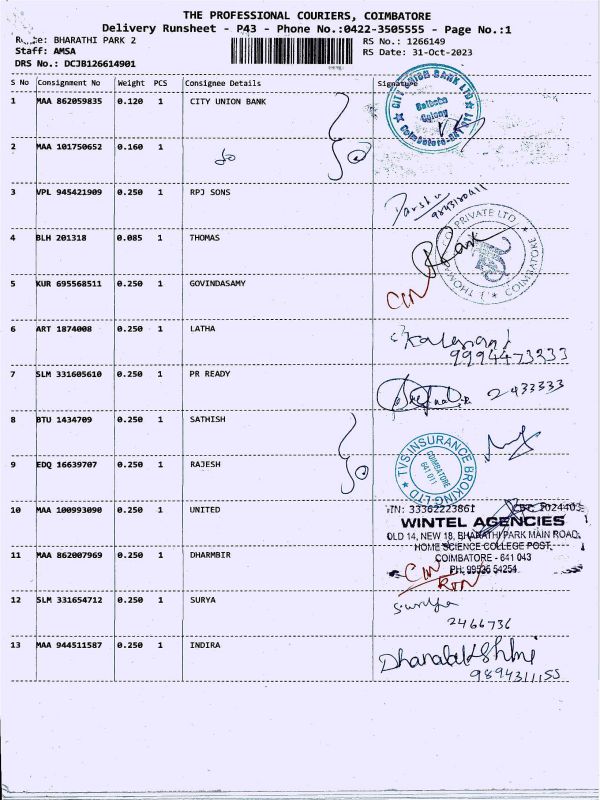 THE PROFESSIONAL COURIERS, COIMBATORE
Delivery Runsheet - P43 - Phone No.:0422-3505555 - Page No.:1
BHARATHI PARK 2
RS No.: 1266149
Staff: AMSA
RS Date: 31-Oct-2023
DRS No.: DCJB126614901
S No Consignment No Weight PCS Consignee Details Signature
1 MAA 862059835 0.120 1 CITY UNION BANK
CITY UNION BANK LTD
Colony
Coimbatore
2 MAA 101750652 0.160 1 do 2
3 VPL 945421909 0.250 1 RPJ SONS
4 BLH 201318 0.085 1 THOMAS
PRIVATE LTD
COIMBATORE
5 KUR 695568511 0.250 1 GOVINDASAMY
6 ART 1874008 0.250 1 LATHA
9994473233
7 SLM 331605610 0.250 1 PR READY 2433333
8 BTU 1434709 0.250 1 SATHISH
TVS INSURANCE BROKING LTD
COIMBATORE
641 011
9 EDQ 16639707 0.250 1 RAJESH 2
10 MAA 100993090 0.250 1 UNITED
TIN: 33362223861
WINTEL AGENCIES
OLD 14, NEW 18, BHARATHI PARK MAIN ROAD,
HOME SCIENCE COLLEGE POST,
COIMBATORE - 641 043
PH: 99526 54254
11 MAA 862007969 0.250 1 DHARMBIR
12 SLM 331654712 0.250 1 SURYA Surya
2466736
13 MAA 944511587 0.250 1 INDIRA Dhanalakshmi
9894311155